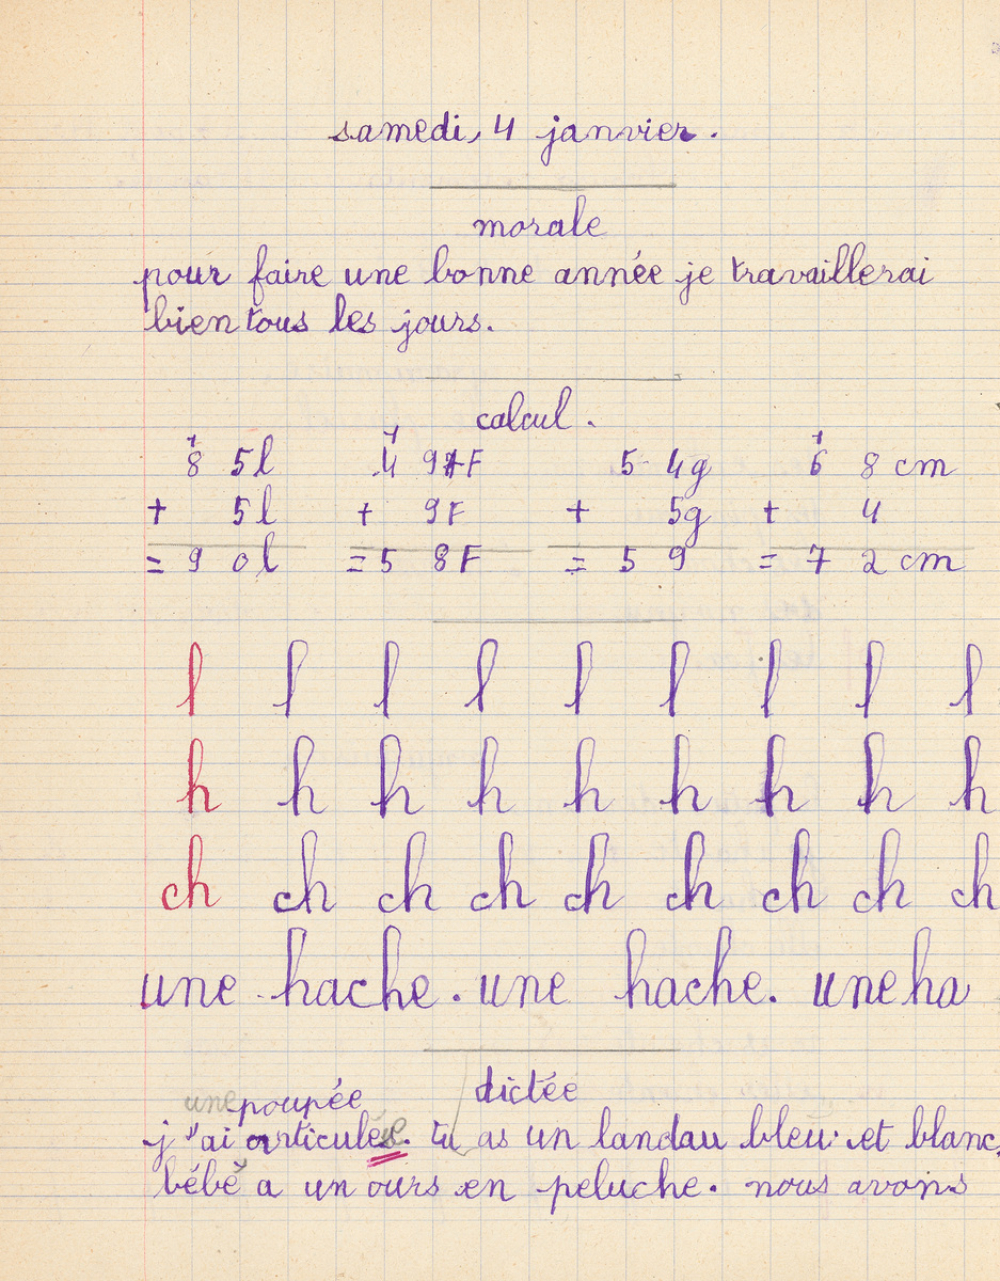 samedi, 4 janvier.
morale
pour faire une bonne année je travaillerai
bien tous les jours.
calcul.
1 1 1
8 5l 4 9F 5 4g 6 8 cm
+ 5l + 9F + 5g + 4
= 9 0l = 5 8F = 5 9 = 7 2 cm
l l l l l l l l l
h h h h h h h h h
ch ch ch ch ch ch ch ch ch
une hache. une hache. une ha
dictée
une poupée
j'ai articulée. tu as un landau bleu et blanc,
bébé a un ours en peluche. nous avons